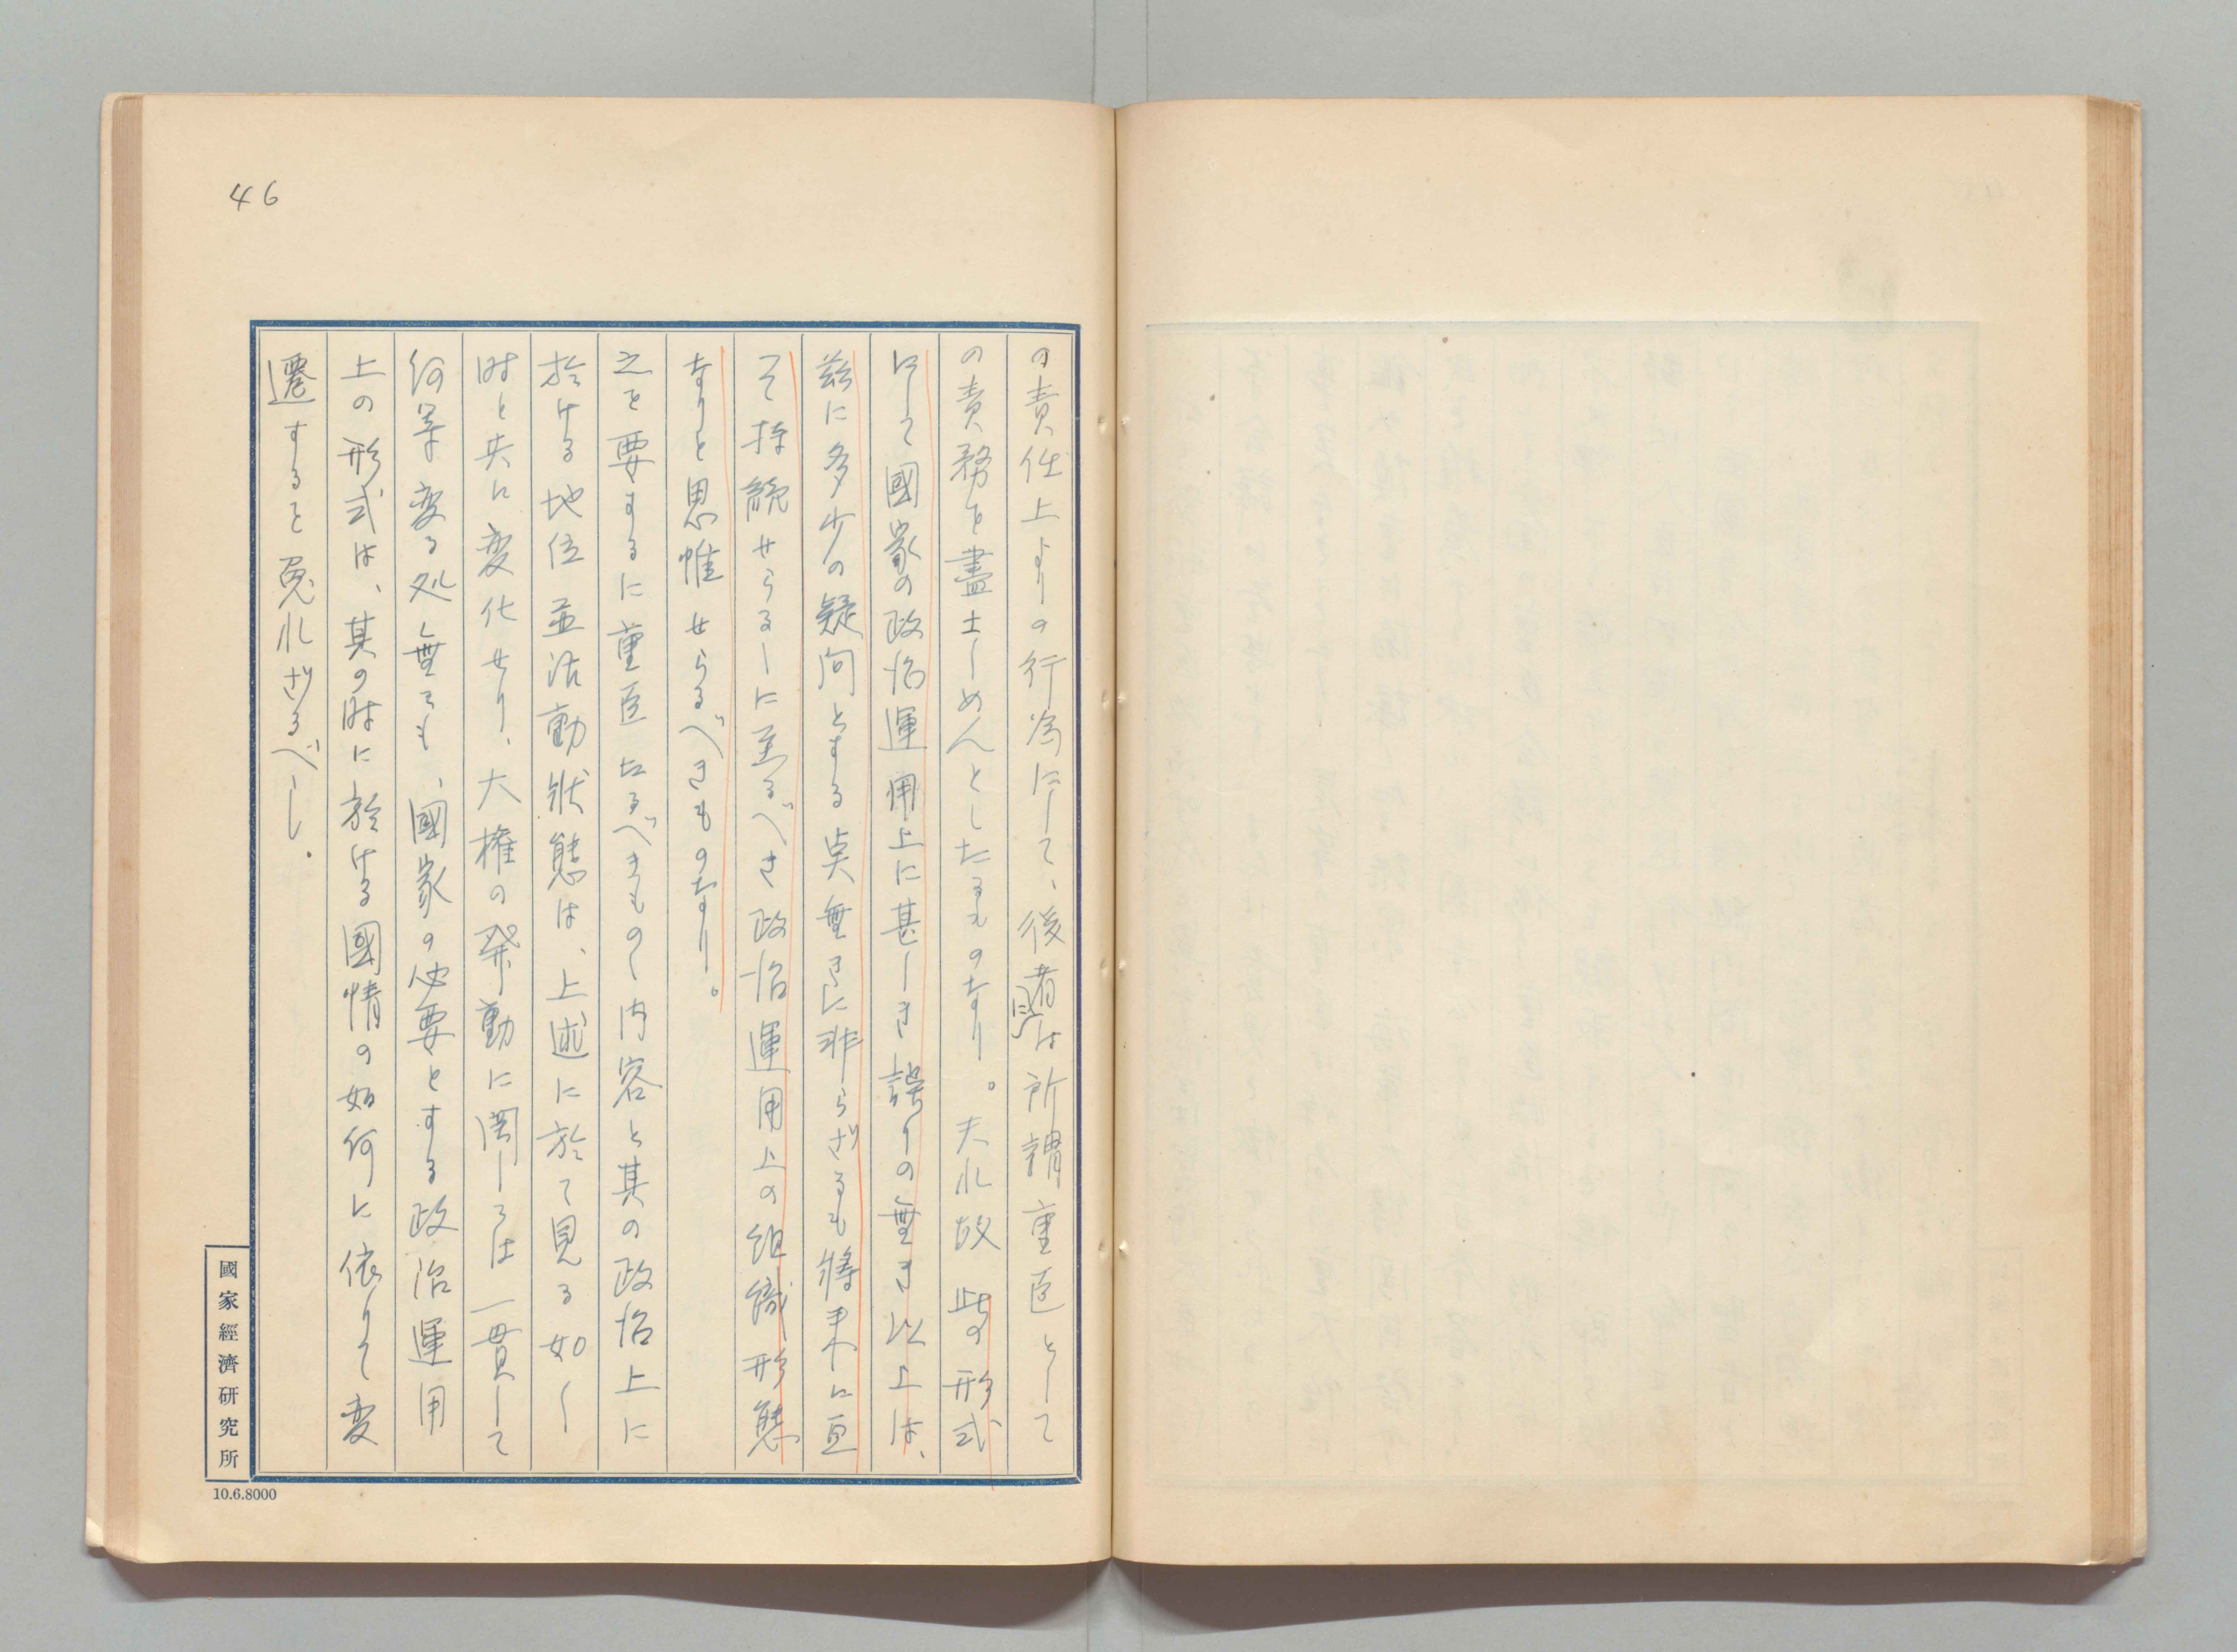 46
の責任上よりの行為にして、後者は所謂重臣として
の責務を盡さしめんとしたるものなり。夫れ故此の形式
にして國家の政治運用上に甚しき誤りの無き以上は、
茲に多少の疑問とする点無きに非らざるも將来に亘
って持続せらるゝに至るべき政治運用上の組織形態
なりと思惟せらるべきものなり。
之を要するに重臣たるべきものゝ内容と其の政治上に
於ける地位並活動狀態は、上述に於て見る如く
時と共に変化せり、大権の発動に関しては一貫して
何等変る処無でも、國家の必要とする政治運用
上の形式は、其の時に於ける國情の如何に依りて変
遷するを免れざるべし.
國家經濟研究所
10.6.8000